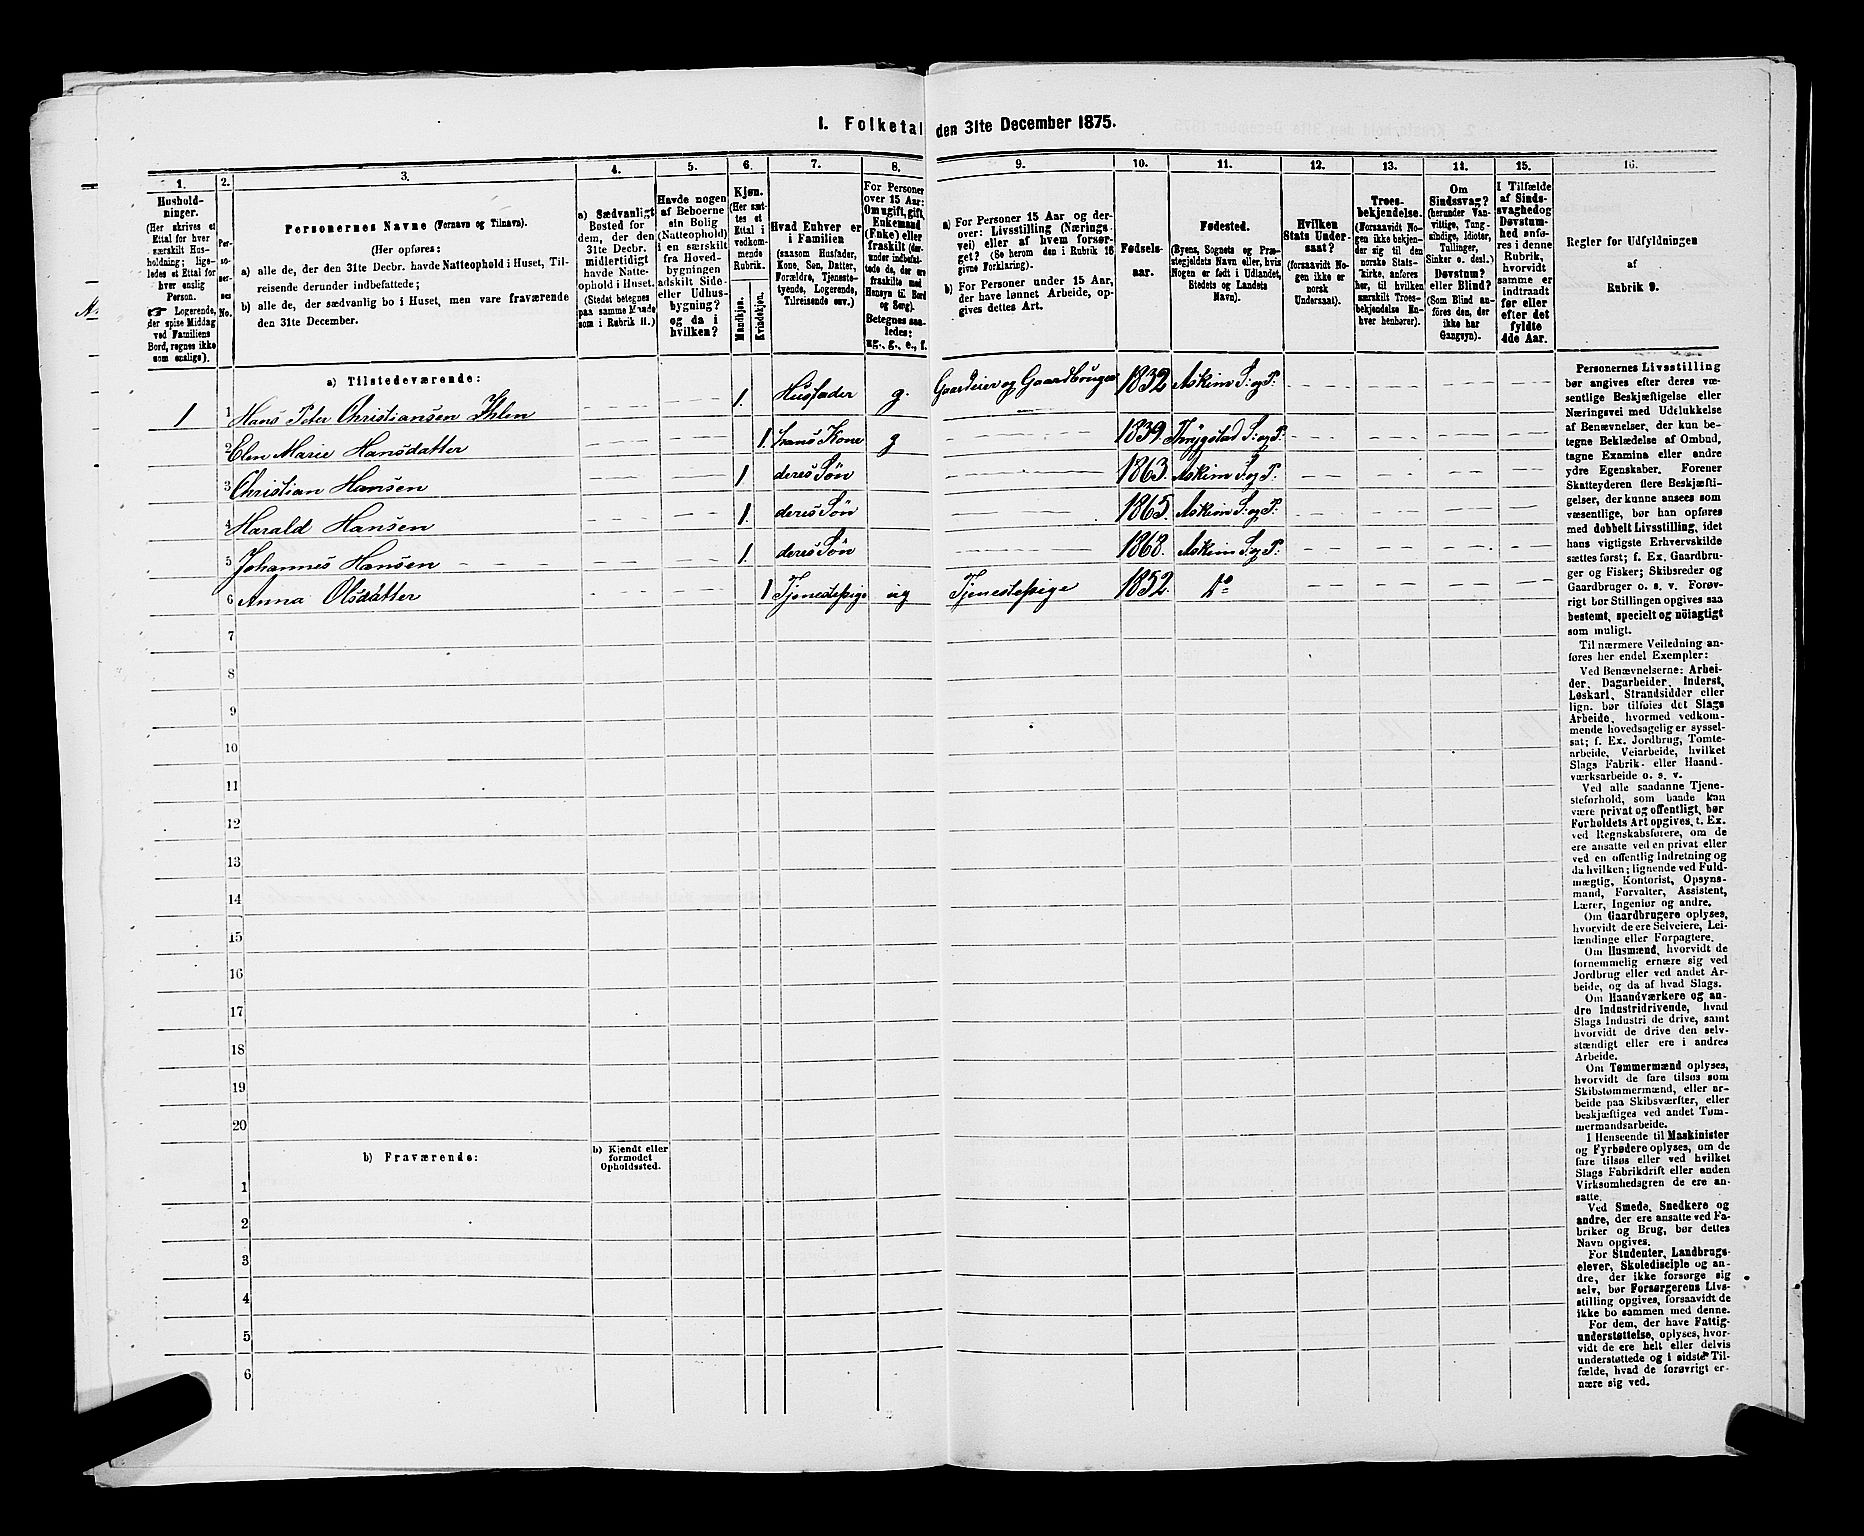 1. Folketal den 31te December 1875.
1.
Hushold-
ninger.
(Her skrives et
Ettal for hver
særskilt Hus-
holdning; lige-
ledes et Ettal for
hver enslig
Person.
☞ Logerende,
der spise Middag
ved Familiens
Bord, regnes ikke
som enslige).
2.
Per-
so-
ner-
nes
No.
3.
Personernes Navne (Fornavn og Tilnavn).
(Her opføres:
a) alle de, der den 31te Decbr. havde Natteophold i Huset, Til-
reisende derunder indbefattede;
b) alle de, der sædvanlig bo i Huset, men vare fraværende
den 31te December.
4.
a) Sædvanligt
Bosted for
dem, der den
31te Decbr.
midlertidigt
havde Natte-
ophold i Huset.
(Stedet betegnes
paa samme Maade
som i Rubrik 11.)
5.
Havde nogen
af Beboerne
sin Bolig
(Natteophold)
i en særskilt
fra Hoved-
bygningen
adskilt Side-
eller Udhus-
bygning?
og da i
hvilken?
6.
Kjøn.
(Her sæt-
tes et
Ettal i
vedkom-
mende
Rubrik.
Mandkjøn.
Kvindekjøn.
7.
Hvad Enhver er
i Familien
(saasom Husfader,
Kone, Søn, Datter,
Forældre, Tjeneste-
tyende, Logerende,
Tilreisende osv.)
8.
For Personer
over 15 Aar:
Om ugift, gift,
Enkemand
(Enke) eller
fraskilt (der-
under indbefat-
tede de, der ere
fraskilte med
Hensyn til Bord
og Seng).
Betegnes saa-
ledes:
ug., g., e., f.
9.
a) For Personer 15 Aar og der-
over: Livsstilling (Nærings-
vei) eller af hvem forsør-
get? (Se herom den i Rubrik 16
givne Forklaring).
b) For Personer under 15 Aar,
der have lønnet Arbeide, op-
gives dettes Art.
10.
Fødsels-
aar.
11.
Fødested.
(Byens, Sognets og Præ-
stegjeldets Navn eller, hvis
Nogen er født i Udlandet,
Stedets og Landets
Navn).
12.
Hvilken
Stats Under-
saat?
(forsaavidt No-
gen ikke er
norsk
Undersaat).
13.
Troes-
bekjendelse.
(Forsaavidt No-
gen ikke bekjen-
der sig til den
norske Stats-
kirke, anføres
her, til hvilken
særskilt Troes-
bekjendelse En-
hver henhører).
14.
Om
Sindssvag?
(herunder Van-
vittige, Tung-
sindige, Idioter,
Tullinger,
Sinker o. desl.)
Døvstum?
eller Blind?
(Som Blind an-
føres den, der
ikke har
Gangsyn).
15.
I Tilfælde
af Sinds-
svaghed og
Døvstum-
hed anfø-
res i denne
Rubrik,
hvorvidt
samme er
indtraadt
før eller
efter det
fyldte
4de Aar.
16.
Regler for Udfyldningen
af
Rubrik 9.
a) Tilstedeværende:
1 1 Hans Peter Christiansen Ihlen 1. Husfader g. Gaardeier og Gaardbruger 1832 Askim S: og P:
2 Elen Marie Hansdatter 1. hans Kone g 1839. Thrygstad S: og P:
3 Christian Hansen 1 deres Søn 1863. Askim S: og P:
4 Harald Hansen 1. deres Søn 1865. Askim S: og P:
5 Johannes Hansen 1. deres Søn 1868. Askim S: og P:
6 Anna Olsdatter 1 Tjenestepige ug Tjenestepige 1852. do
7
8
9
10
11
12
13
14
15
16
17
18
19
20
b) Fraværende:
b) Kjendt eller
formodet
Opholdssted.
1
2
3
4
5
6
Personernes Livsstilling
bør angives efter deres væ-
sentlige Beskjæftigelse eller
Næringsvei med Udelukkelse
af Benævnelser, der kun be-
tegne Beklædelse af Ombud,
tagne Examina eller andre
ydre Egenskaber. Forener
Skatteyderen flere Beskjæfti-
gelser, der kunne ansees som
væsentlige, bør han opføres
med dobbelt Livsstilling, idet
hans vigtigste Erhvervskilde
sættes først; f. Ex. Gaardbru-
ger og Fisker; Skibsreder og
Gaardbruger o. s. v. Forøv-
rigt bør Stillingen opgives saa
bestemt, specielt og nöiagtigt
som muligt.
Til nærmere Veiledning an-
føres her endel Exempler:
Ved Benævnelserne: Arbei-
der, Dagarbeider, Inderst,
Løskarl, Strandsidder eller
lign. bør tilføies det Slags
Arbeide, hvormed vedkom-
mende hovedsagelig er syssel-
sat; f. Ex. Jordbrug, Tomte-
arbeide, Veiarbeide, hvilket
Slags Fabrik- eller Haand-
værksarbeide o. s. v.
Ved alle saadanne Tjene-
steforhold, som baade kan
være privat og offentligt, bør
Forholdets Art opgives, t. Ex.
ved Regnskabsførere, om de
ere ansatte ved en privat eller
ved en offentlig Indretning og
da hvilken; lignende ved Fuld-
mægtig, Kontorist, Opsyns-
mand, Forvalter, Assistent,
Lærer, Ingeniør og andre.
Om Gaardbrugere oplyses,
hvorvidt de ere Selveiere, Lei-
lændinge eller Forpagtere.
Om Husmænd, hvorvidt de
fornemmelig ernære sig ved
Jordbrug eller ved andet Ar-
beide, og da af hvad Slags.
Om Haandværkere og an-
dre Industridrivende, hvad
Slags Industri de drive, samt
hvorvidt de drive den selv-
stændigt eller ere i andres
Arbeide.
Om Tømmermænd oplyses,
hvorvidt de fare tilsøs som
Skibstømmermænd, eller ar-
beide paa Skibsværfter, eller
beskjæftiges ved andet Tøm-
mermandsarbeide.
I Henseende til Maskinister
og Fyrbødere oplyses, om de
fare tilsøs eller ved hvilket
Slags Fabrikdrift eller anden
Virksomhedsgren de ere an-
satte.
Ved Smede, Snedkere og
andre, der ere ansatte ved Fa-
briker og Brug, bør dettes
Navn opgives.
For Studenter, Landbrugs-
elever, Skoledisciple og an-
dre, der ikke forsørge sig
selv, bør Forsørgerens Livs-
stilling opgives, forsaavidt de
ikke bo sammen med denne.
For dem, der have Fattig-
understøttelse, oplyses, hvor-
vidt de ere helt eller delvis
understøttede og i sidste Til-
fælde, hvad de forøvrigt er-
nære sig ved.